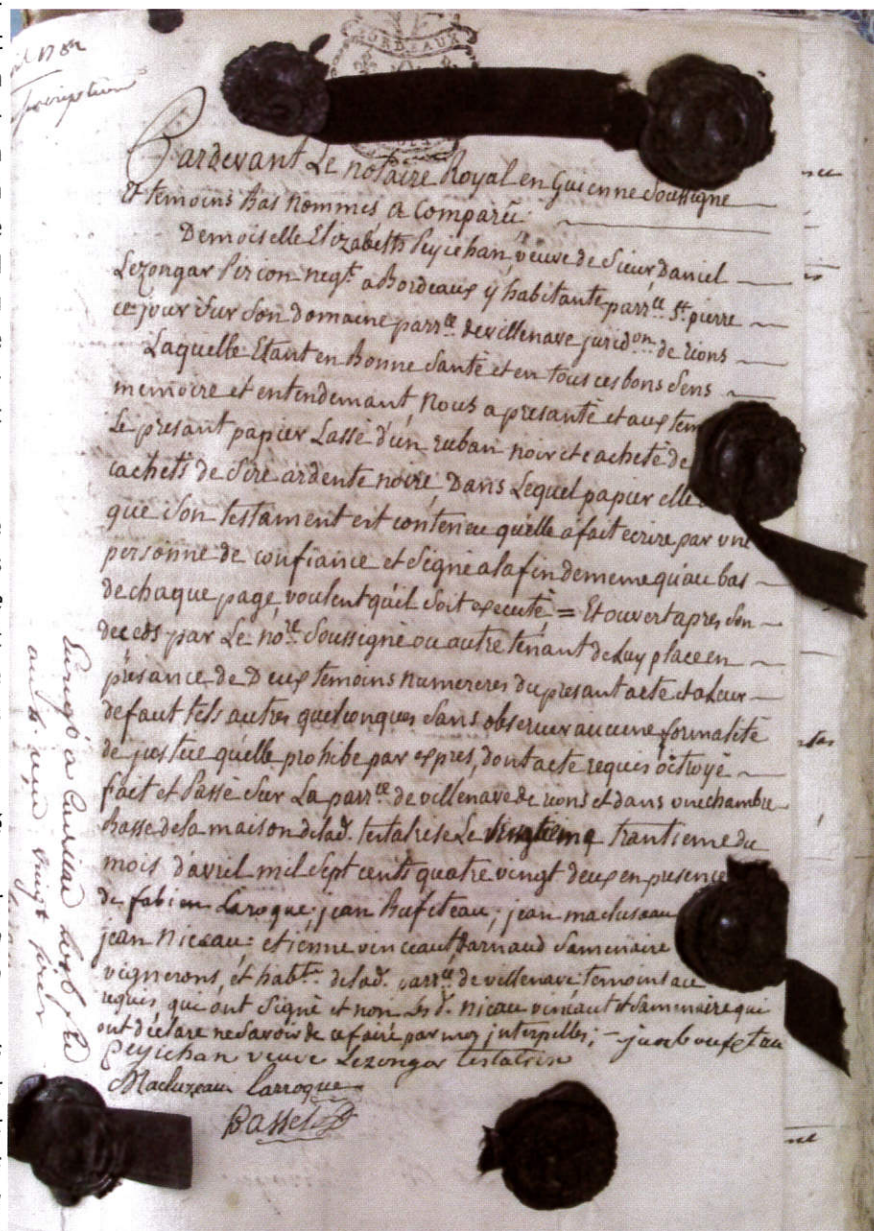 BORDEAUX
Pardevant Le notaire Royal en Guienne Soussigné
Et temoins bas nommés a Comparû
Demoiselle Elizabeth Peyichan, veuve de Sieur Daniel
Lezongar negt. a Bordeaux ÿ habitante parrce. St. pierre
ce jour sur Son domaine parrce. de villenave juridon. de rions
Laquelle Etant en Bonne Santé et en tous ces bons Sens
memoire et entendemant, Nous a presanté et aux tem
Le presant papier Lassé d'un ruban noir et cacheté de
cachets de Sire ardente noire, Dans Lequel papier elle
que Son testament est contenu qu'elle a fait ecrire par une
personne de confiance et Signé a la fin de meme qu'au bas
de chaque page, voulent qu'il Soit executé = Et ouvert apres Son
deceds par Le nore. Soussigné ou autre tenant de Luy place en
presance de Deux temoins numereres du presant acte et a Leur
defaut tels autres quelconques Sans observer aucune formalité
de justice qu'elle prohibe par expres, dont acte requis octroyé
fait et Passé Sur La parrce. de villenave de rions et dans une chambre
basse de la maison de lad. testatrise Le trantieme du
mois d'avril mil Sept cents quatre vingt deux en presence
de fabien Laroque, jean Bufeteau, jean macluseau
jean Niceau, etienne vinceaut, arnaud Samenaire
vignerons, et habts. de lad. parrce. de villenave temoins a ce
requis, qui ont Signé et non Les d. Niceau vinceaut et Samenaire qui
ont déclaré ne Savoir de ce faire par moy interpellés; jean boufetau
Peyichan veuve Lezongar testatrice
Macluzeau Larroque
Basset